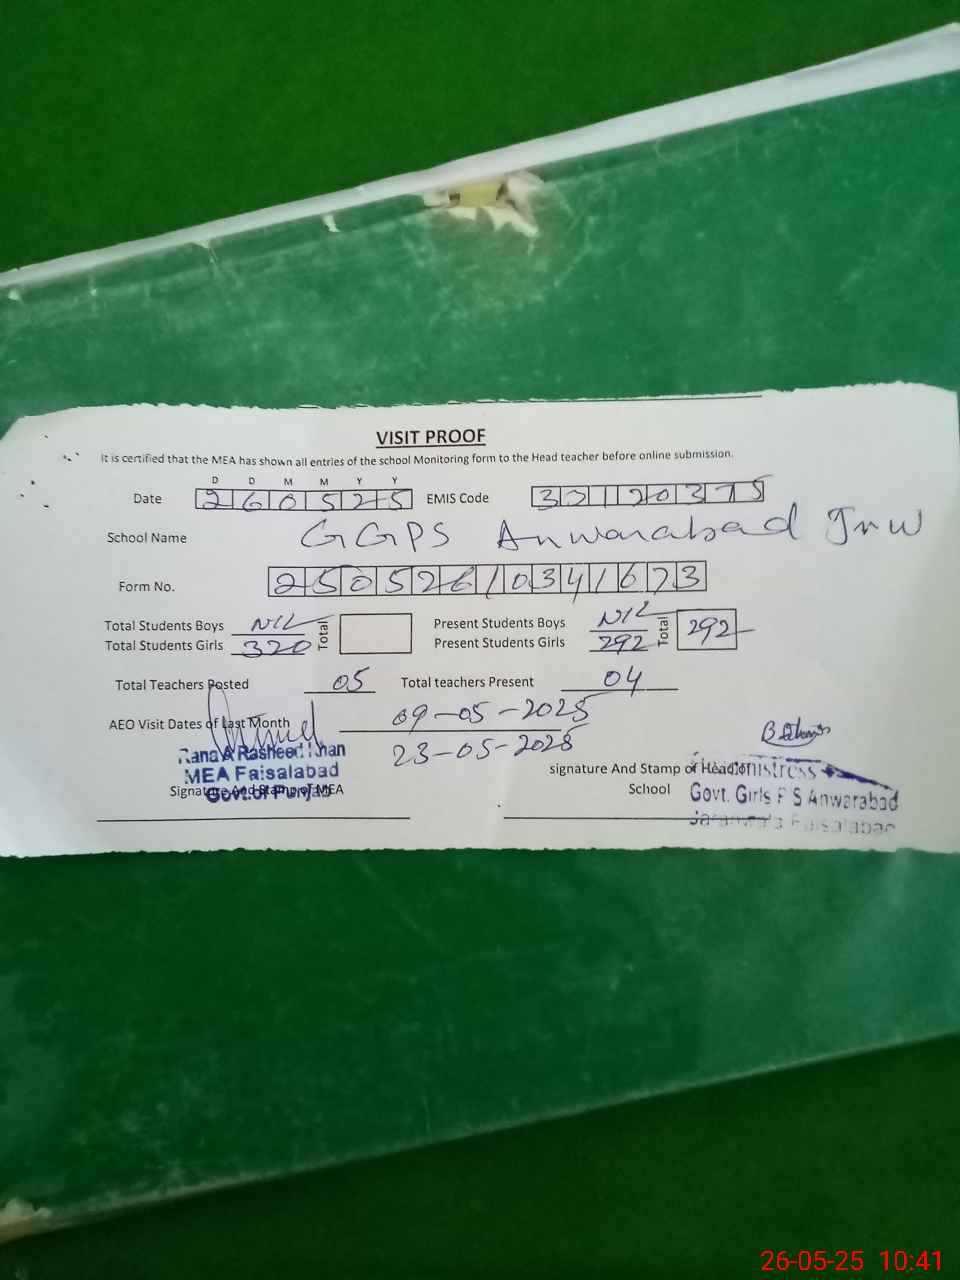 VISIT PROOF
It is certified that the MEA has shown all entries of the school Monitoring form to the Head teacher before online submission.
D D M M Y Y
Date 260525 EMIS Code 33120375
School Name GGPS Anwarabad Jnw
Form No. 25052610341673
Total Students Boys NIL Total Present Students Boys NIL Total 292
Total Students Girls 320 Present Students Girls 292
Total Teachers Posted 05 Total teachers Present 04
AEO Visit Dates of Last Month 09-05-2025
23-05-2025
Rana A Rasheed Khan
MEA Faisalabad
Govt. of Punjab
Signature And Stamp of MEA
signature And Stamp of Head
School
Headmistress
Govt. Girls P S Anwarabad
Jaranwala Faisalabad
26-05-25 10:41